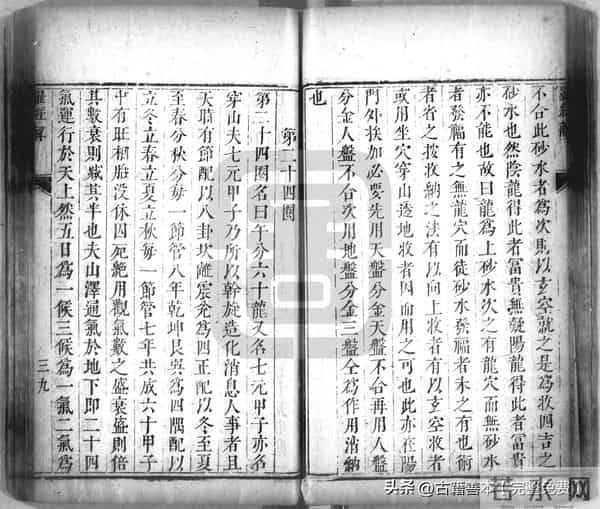 不合此砂水者為次則以玄空就之是為收四吉之
砂水也然陰龍得此者冨貴無礙陽龍得此者冨貴
亦不能也故曰龍為上砂水次之有龍穴而無砂水
者發福有之無龍穴而徒砂水發福者未之有也術
者省之按收納之法有以向上收者有以玄空收者
或用坐穴穿山透地收者因而用之可也此亦在陽
門外挨加必要先用天盤分金天盤不合再用人盤
分金人盤不合次用地盤分金三盤仝為作用消納
也
第二十四圈
第二十四圈名曰午分六十龍又名七元甲子亦名
穿山夫七元甲子乃所以幹旋造化消息人事者且
天時有節配以八卦坎離震兊為四正配以冬至夏
至春分秋分毎一節管八年乾坤艮巽為四隅配以
立冬立春立夏立秋毎一節管七年共成六十甲子
中有旺相胎没休囚死絶用觀氣數之盛衰盛則倍
其數衰則減其半也夫山澤通氣於地下即二十四
氣運行於天上然五日為一候三候為一氣二氣為
羅經解
三九
頭条 @古籍善本十完整免费